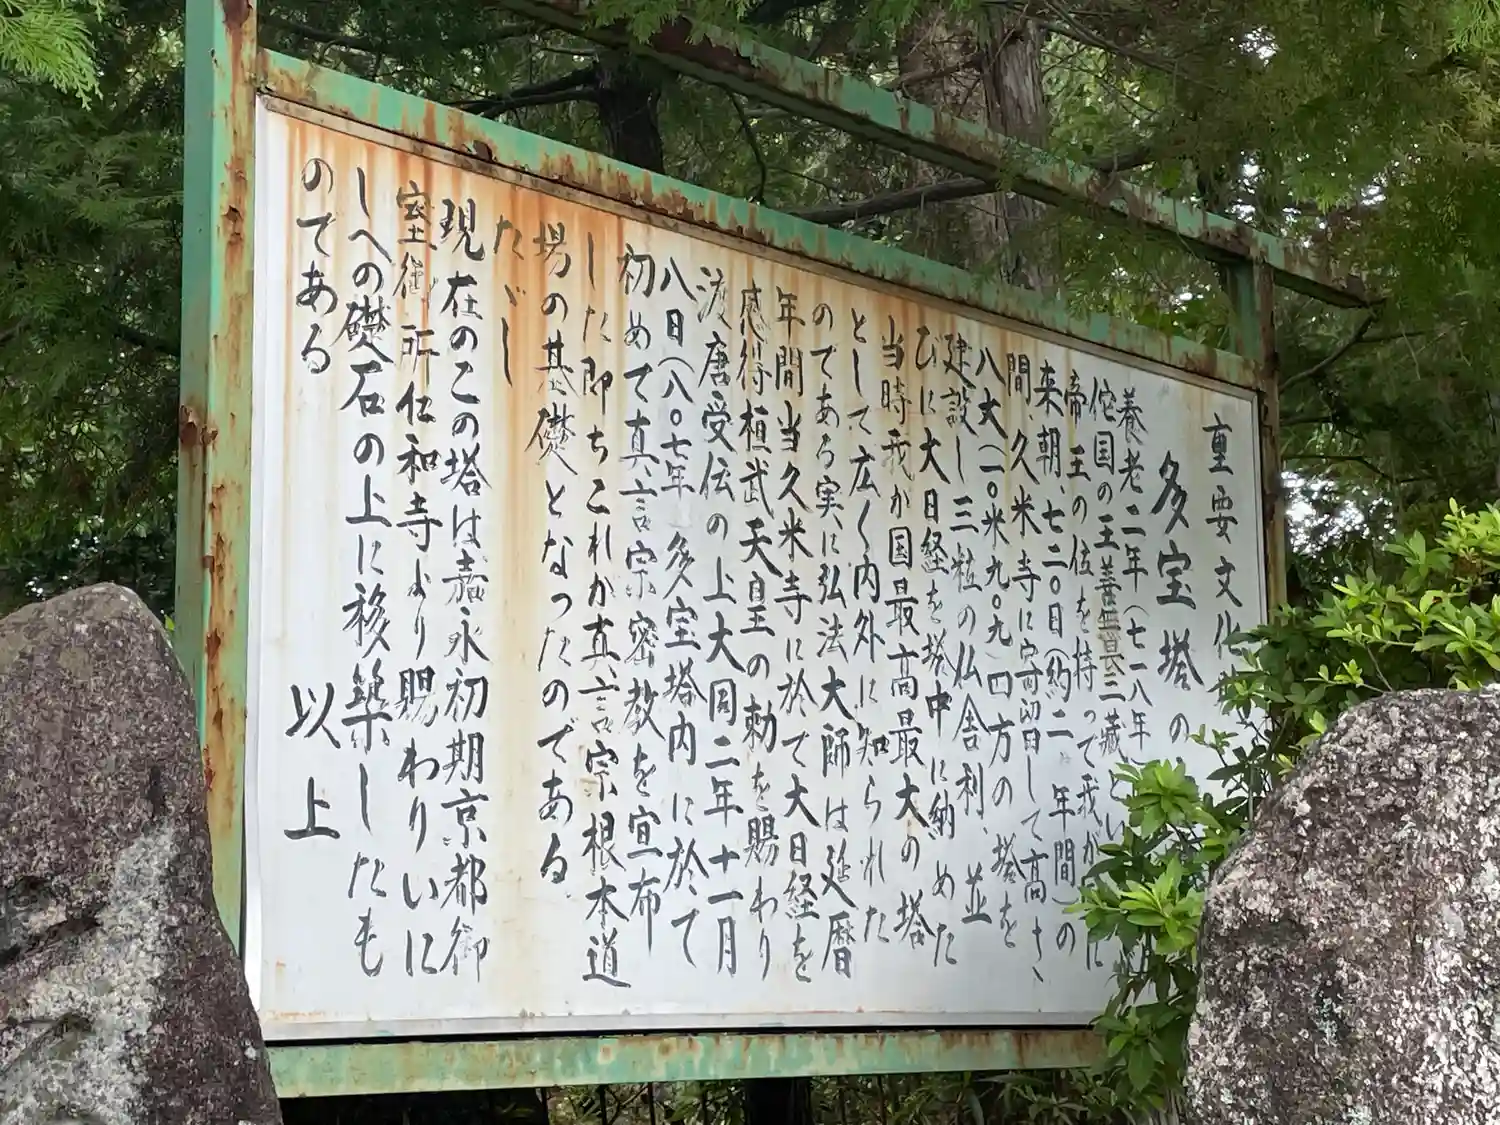 重要文化
多宝塔の
養老二年(七一八年)とい
佗国の王善無畏三蔵
帝王の位を持って我が に
来朝、七二〇日(約二 年間)の
間、久米寺に寄留日して高さ
八丈(一〇米九〇九)四方の塔を
建設し三粒の仏舎利、並
ひに大日経を塔中に納めた
当時我か国最高最大の塔
として広く内外に知られた
のである実に弘法大師は延暦
年間当久米寺に於て大日経を
感得桓武天皇の勅を賜わり
渡唐受伝の上大同二年十一月
八日(八〇七年 多宝塔内に於て
初めて真言宗密教を宣布
した即ちこれか真言宗根本道
場の基礎となったのである
たゞし
現在のこの塔は嘉永初期京都御
室御所仁和寺より賜わりいに
しへの礎石の上に移築したも
のである 以上